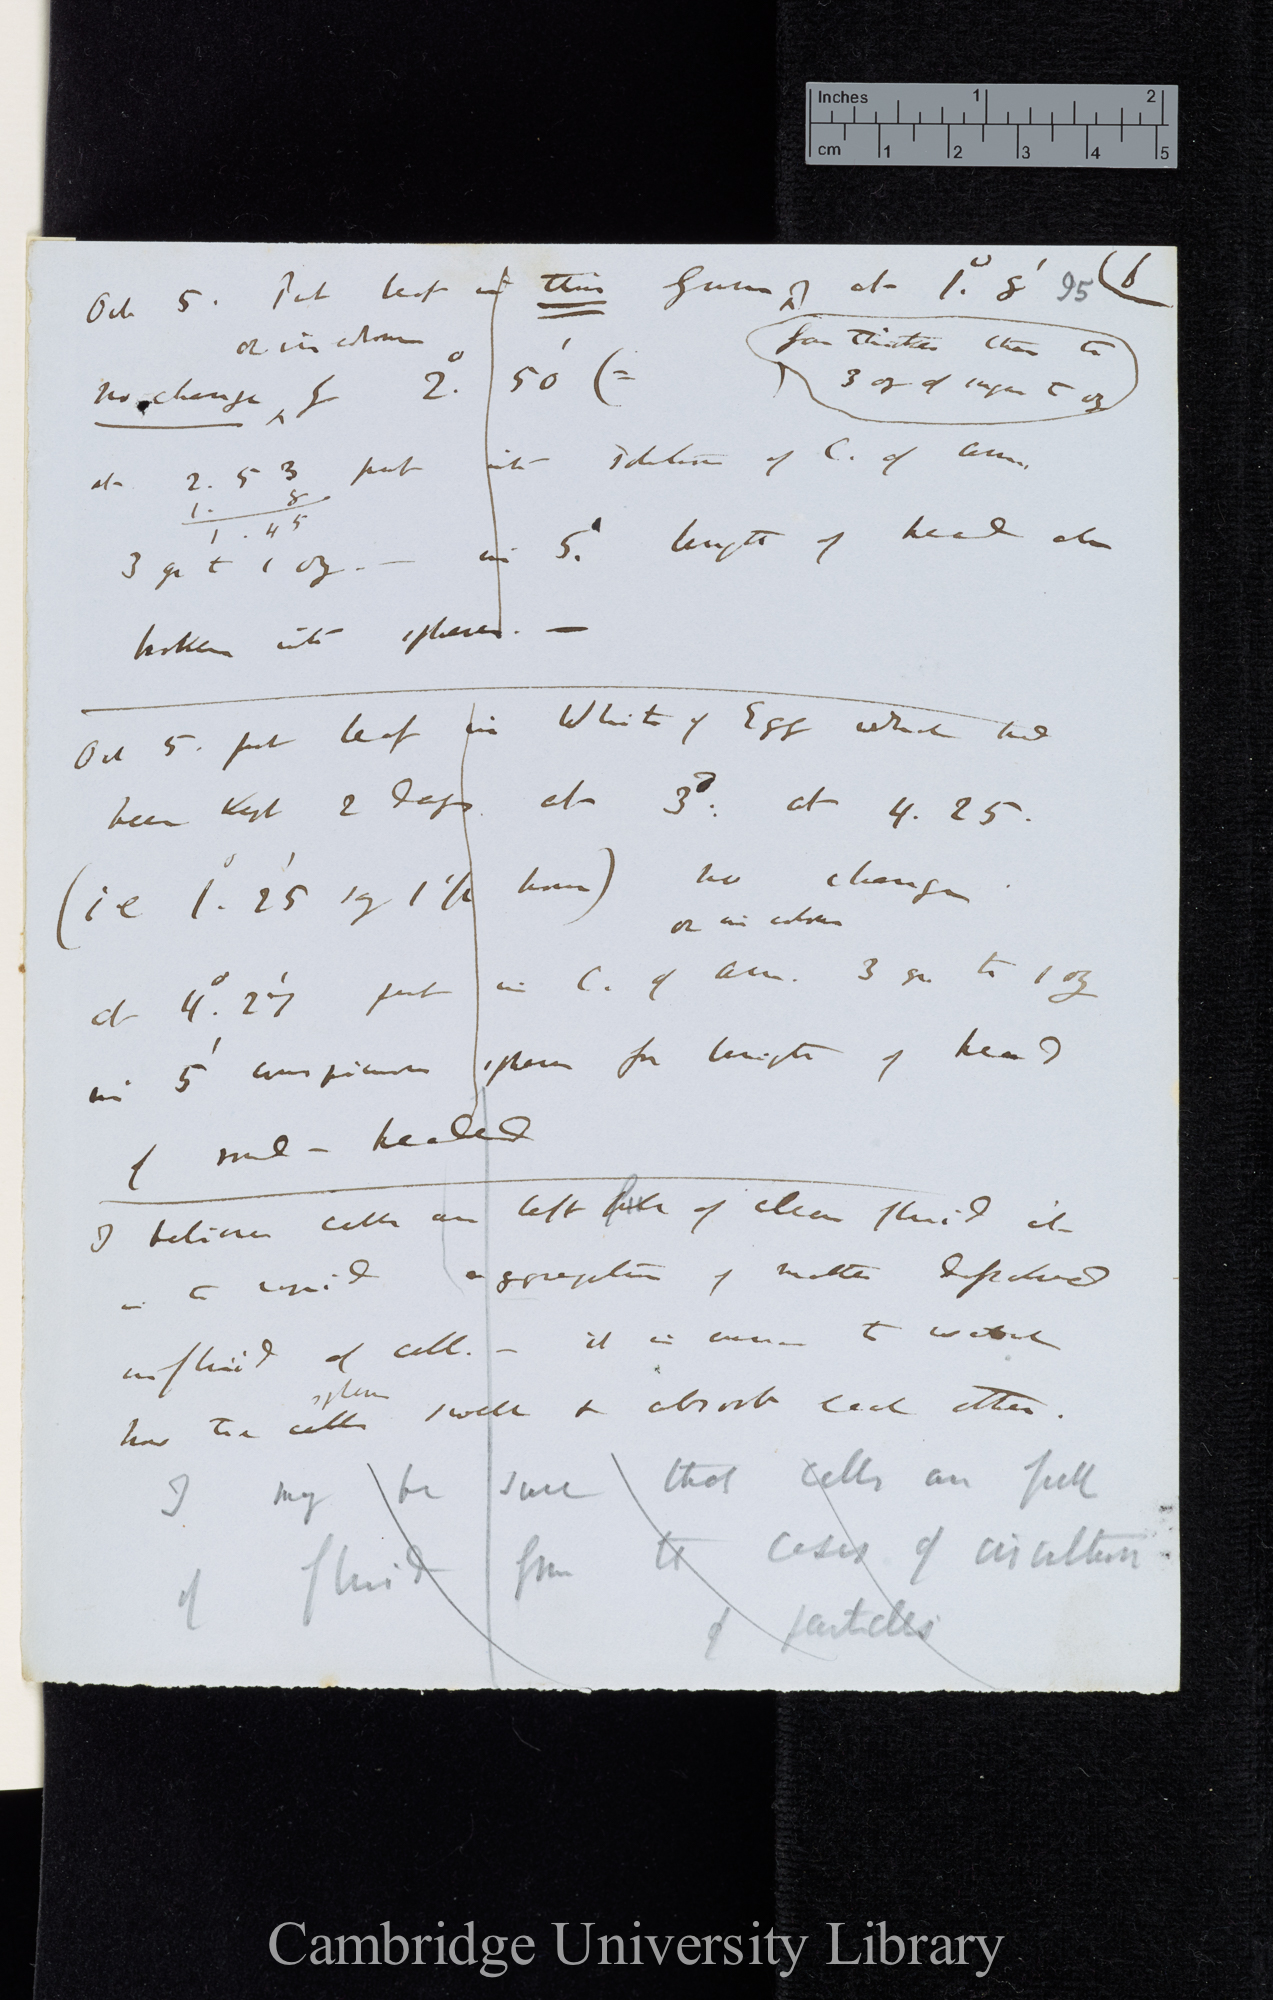 Inches 1 2
cm 1 2 3 4 5
(6
95
Oct 5. Put leaf in thin Gum at 1°. 8'
far thicker than the
3 oz of sugar to oz
or in colour
no change by 2°. 50' (=
at 2. 53 put into solution of C. of Am.
1. 8
1. 45
3 gr to 1 oz. — in 5' length of head also
broken into spheres. —
Oct 5. put leaf in White of Egg which had
been kept 2 days at 3°. at 4. 25.
(ie 1°. 25' say 1 1/2 hour) no change.
or in colour
at 4°. 27' put in C. of Am. 3 gr. to 1 oz
in 5' conspicuous spheres for length of head
of round-headed
I believe cells are left full of clear fluid it
is a rapid aggregation of matter dissolved
in fluid of cell. — it is curious to watch
spheres
how the cells swell & absorb each other.
I may be sure that cells are full
of fluid from the cases of circulation
of particles
Cambridge University Library